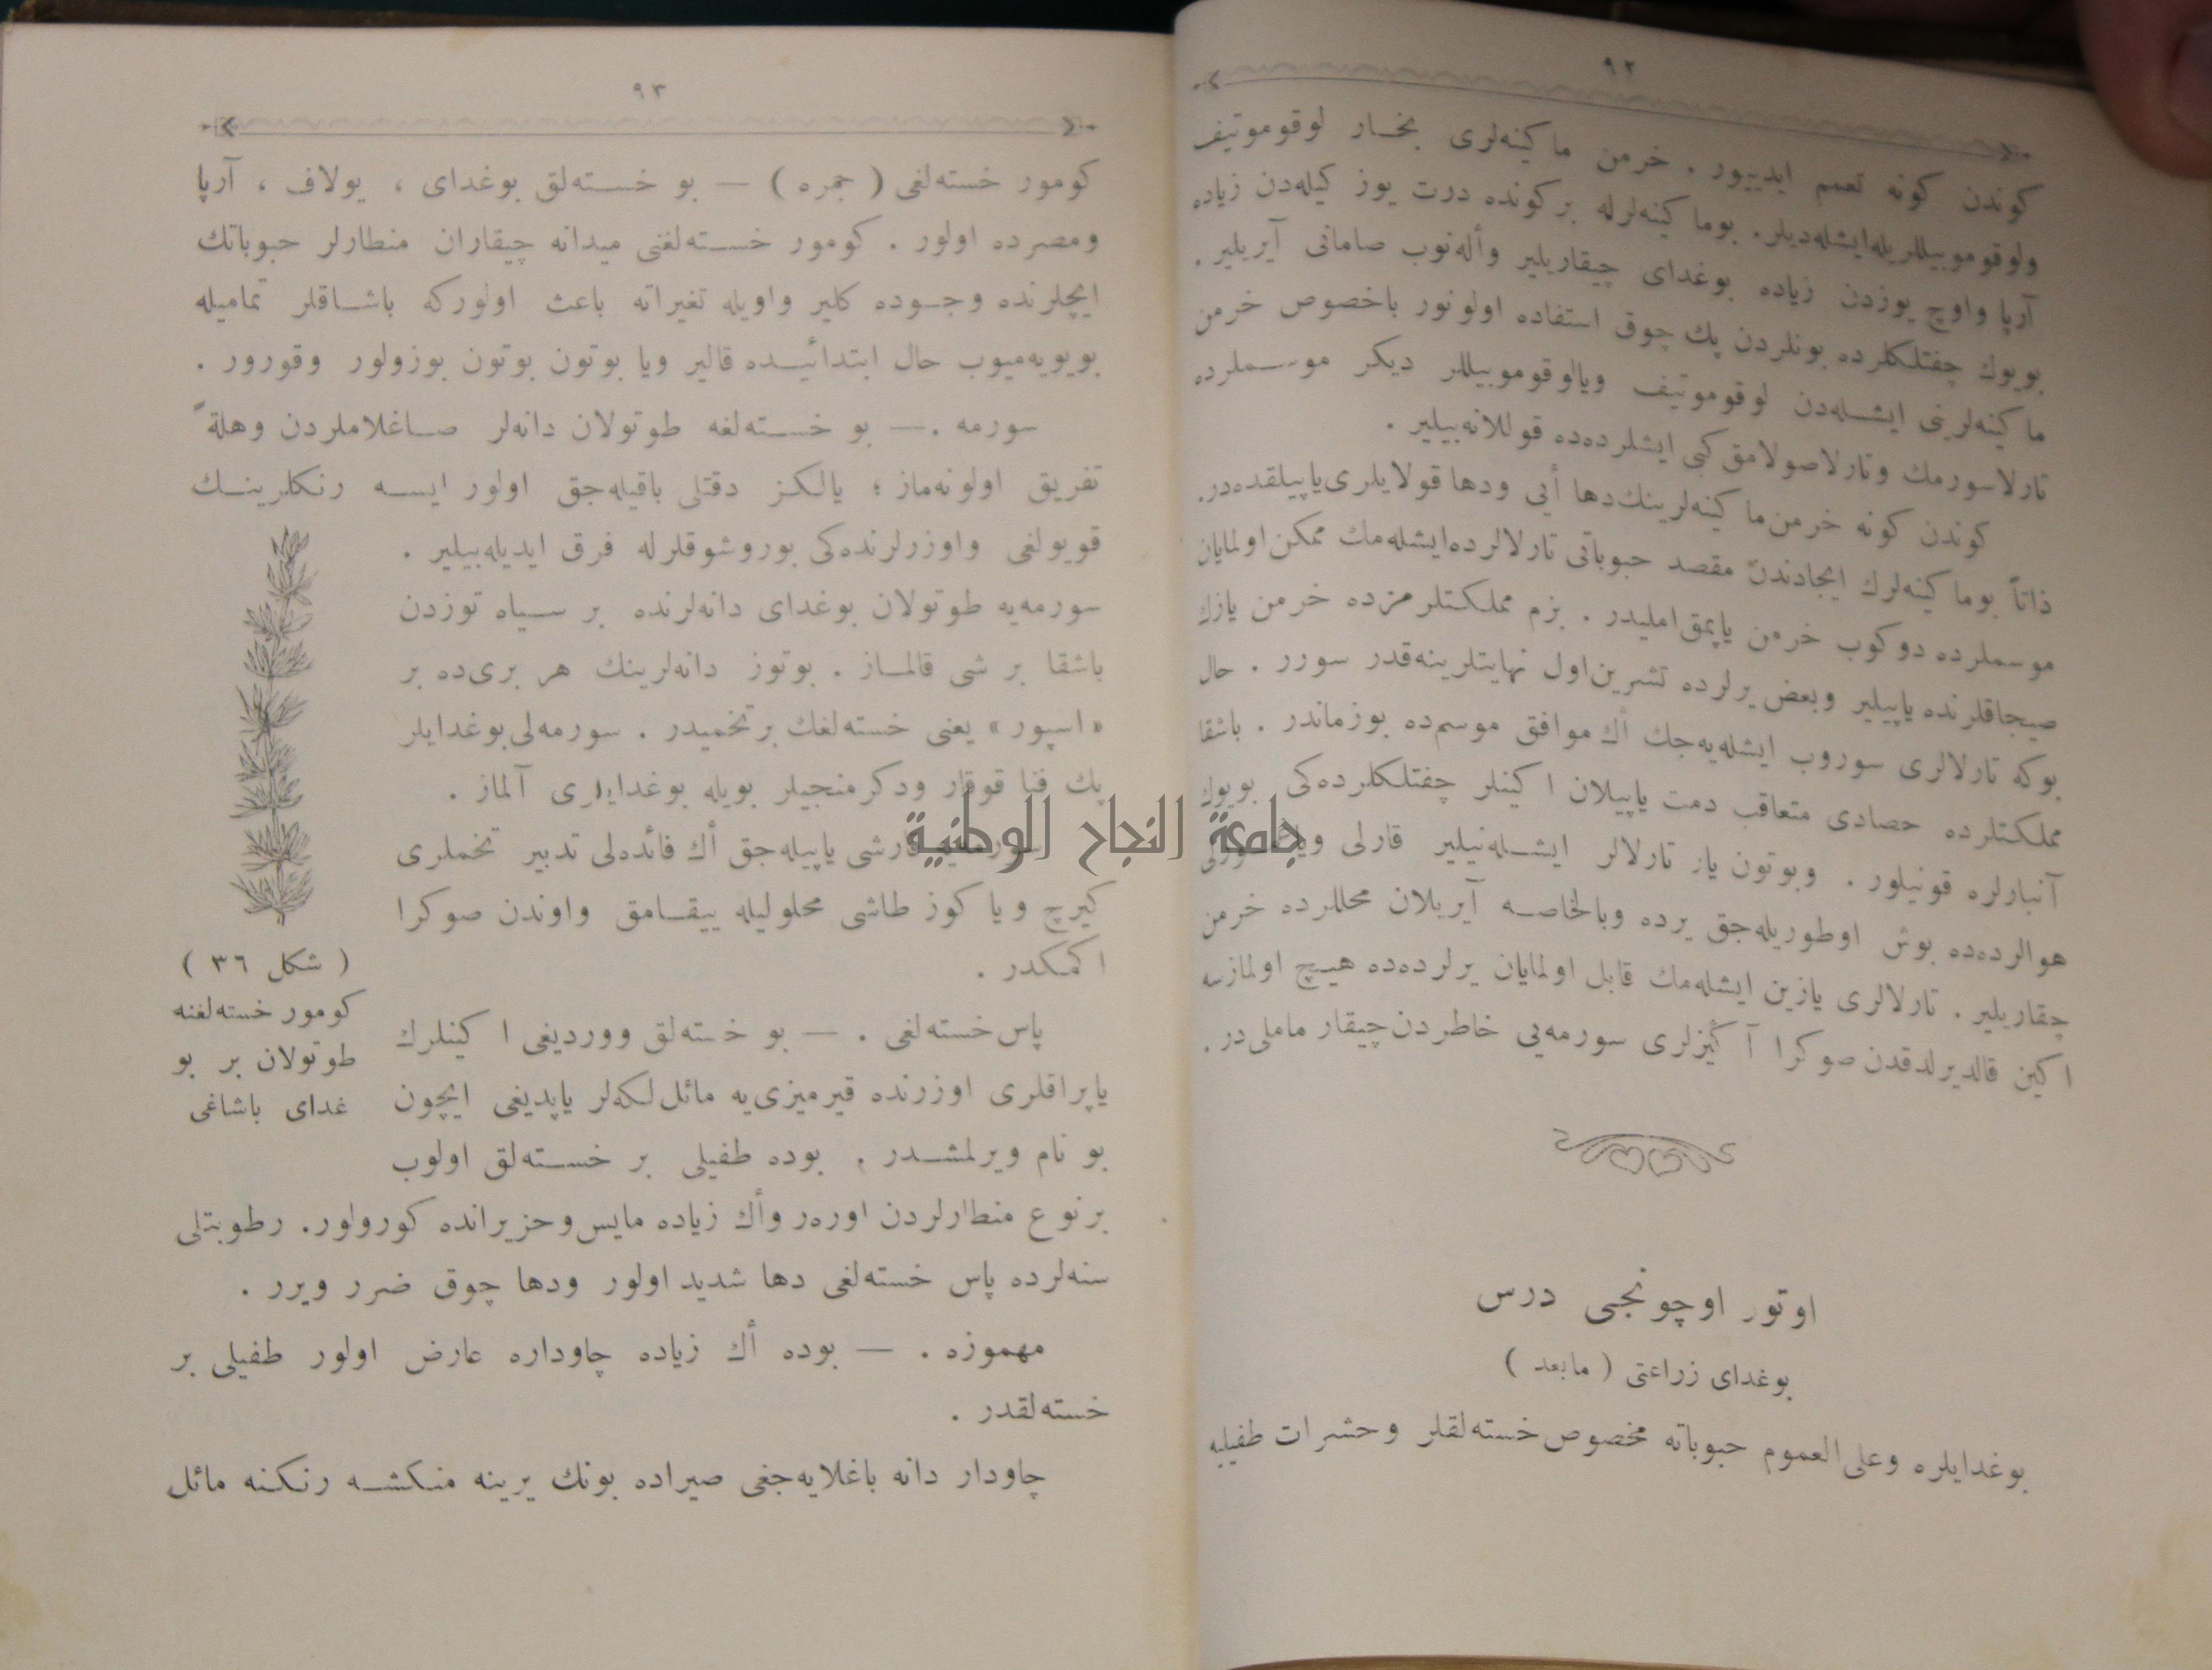 ٩٢
كوندن كونه تعمم ايدييور . خرمن ماكينه‌لرى بخار لوقوموتيف
ولوقوموبيللريله‌ايشله‌ديلر. بوماكينه‌لرله بركونده درت يوز كيله‌دن زياده
آرپا واوچ يوزدن زياده بوغداى چيقاريلير وأله‌نوب صامانى آيريلير .
بويوك چفتلكلرده بونلردن پك چوق استفاده اولونور باخصوص خرمن
ماكينه‌لرينى ايشله‌دن لوقوموتيف ويالوقوموبيللر ديكر موسملرده
تارلاسورمك وتارلاصولامق كبى ايشلرده‌ده قوللانه‌بيلير .
كوندن كونه خرمن‌ماكينه‌لرينك‌دها أيى ودها قولايلرى‌ياپيلقده‌در.
ذاتاً بوماكينه‌لرك ايجادندن مقصد حبوباتى تارلالرده‌ايشله‌مك ممكن‌اولمايان
موسملرده دوكوب خرمن ياپمق‌امليدر . بزم مملكتلرمزده خرمن يازك
صيجاقلرنده ياپيلير وبعض يرلرده تشرين‌اول نهايتلرينه‌قدر سورر . حال
بوكه تارلالرى سوروب ايشله‌يه‌جك أك موافق موسم‌ده بوزماندر . باشقا
مملكتلرده حصادى متعاقب دمت ياپيلان اكينلر چفتلكلرده‌كى بويوك
آنبارلره قونيلور . وبوتون ياز تارلالر ايشله‌نيلير قارلى ويا
هوالرده‌ده بوش اوطوريله‌جق يرده وبالخاصه آيريلان محللرده خرمن
چقاريلير . تارلالرى يازين ايشله‌مك قابل اولمايان يرلرده‌ده هيچ اولمازسه
اكين قالديرلدقدن صوكرا آكيزلرى سورمه‌يى خاطردن‌چيقار ماملى‌در.
اوتور اوچونجى درس
بوغداى زراعتى ( مابعد )
بوغدايلره وعلى‌العموم حبوباته مخصوص‌خسته‌لقلر وحشرات طفيليه
٩٣
كومور خسته‌لغى ( جمره ) — بو خسته‌لق بوغداى ، يولاف ، آرپا
ومصرده اولور . كومور خسته‌لغنى ميدانه چيقاران منطارلر حبوباتك
ايچلرنده وجوده كلير واويله تغيراته باعث اولوركه باشاقلر تماميله
بويويه‌ميوب حال ابتدائيده قالير ويا بوتون بوتون بوزولور وقورور .
سورمه .— بو خسته‌لغه طوتولان دانه‌لر صاغلاملردن وهلةً
تفريق اولونه‌ماز ؛ يالكز دقتلى باقيله‌جق اولور ايسه رنكلرينك
قويولغى واوزرلرنده‌كى بوروشوقلرله فرق ايديله‌بيلير .
سورمه‌يه طوتولان بوغداى دانه‌لرنده بر سياه توزدن
باشقا بر شى قالماز . بوتوز دانه‌لرينك هر برى‌ده بر
«اسپور» يعنى خسته‌لغك برتخميدر . سورمه‌لى‌بوغدايلر
پك فنا قوقار ودكرمنجيلر بويله بوغدايلرى آلماز .
جامعة النجاح الوطنية
سورمه‌يه قارشى ياپيله‌جق أك فائده‌لى تدبير تخملرى
كيرچ ويا كوز طاشى محلوليله ييقامق واوندن صوكرا
اكمكدر .
( شكل ٣٦ )
كومور خسته‌لغنه
طوتولان بر بو
غداى باشاغى
پاس‌خسته‌لغى . — بو خسته‌لق ووردیغى اكينلرك
ياپراقلرى اوزرنده قيرميزى‌يه مائل‌لكه‌لر ياپديغى ايچون
بو نام ويرلمشدر . بوده طفيلى بر خسته‌لق اولوب
برنوع منطارلردن اوره‌ر وأك زياده مايس‌وحزيرانده كورولور. رطوبتلى
سنه‌لرده پاس خسته‌لغى دها شديد اولور ودها چوق ضرر ويرر .
مهموزه . — بوده أك زياده چاوداره عارض اولور طفيلى بر
خسته‌لقدر .
چاودار دانه باغلايه‌جغى صيراده بونك يرينه منكشه رنكنه مائل